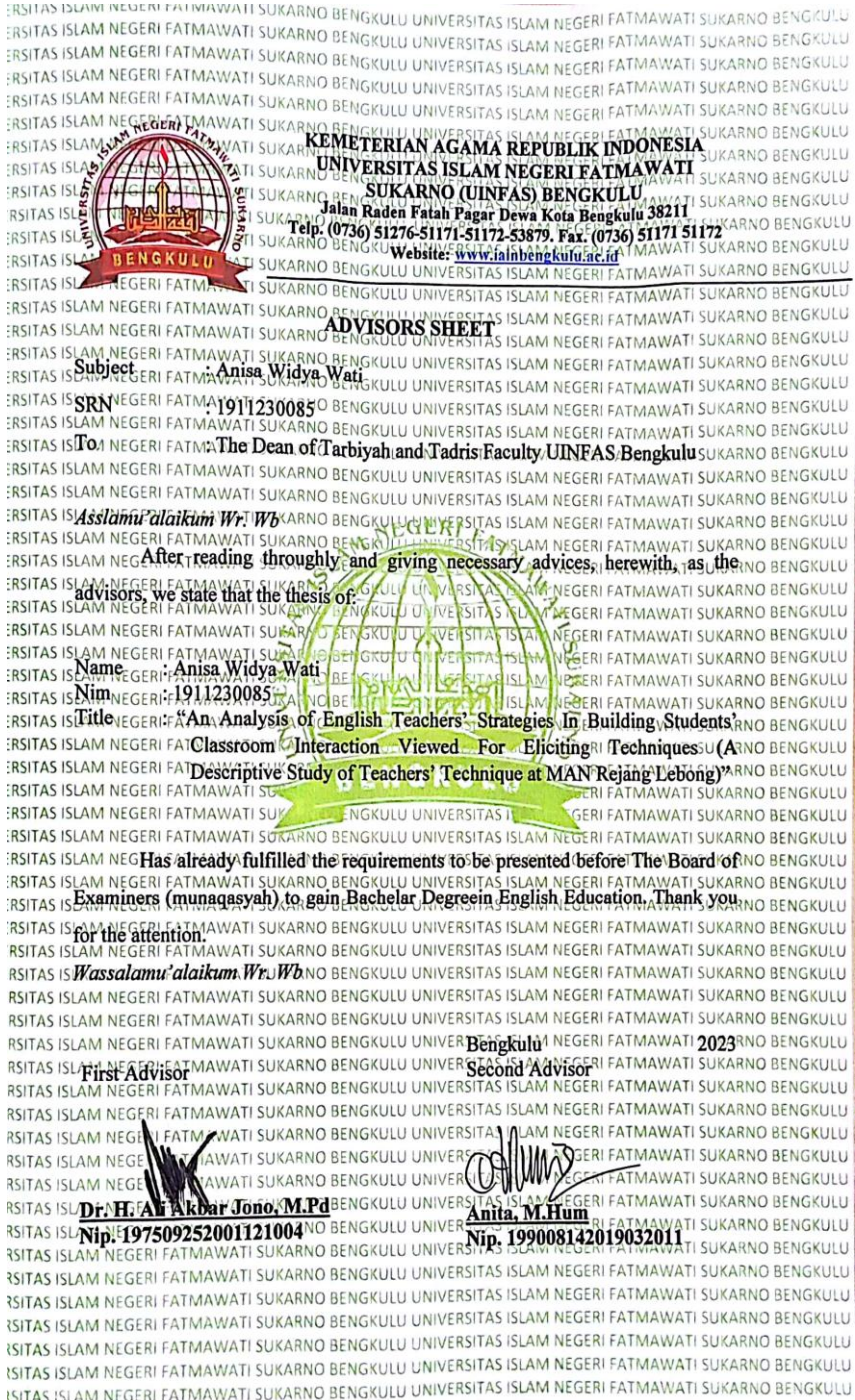 UNIVERSITAS ISLAM NEGERI FATMAWATI SUKARNO
BENGKULU
KEMETERIAN AGAMA REPUBLIK INDONESIA
UNIVERSITAS ISLAM NEGERI FATMAWATI
SUKARNO (UINFAS) BENGKULU
Jalan Raden Fatah Pagar Dewa Kota Bengkulu 38211
Telp. (0736) 51276-51171-51172-53879. Fax. (0736) 51171 51172
Website: www.iainbengkulu.ac.id
ADVISORS SHEET
Subject : Anisa Widya Wati
SRN : 1911230085
To : The Dean of Tarbiyah and Tadris Faculty UINFAS Bengkulu
Asslamu'alaikum Wr. Wb
After reading throughly and giving necessary advices, herewith, as the
advisors, we state that the thesis of:
Name : Anisa Widya Wati
Nim : 1911230085
Title : "An Analysis of English Teachers' Strategies In Building Students'
Classroom Interaction Viewed For Eliciting Techniques (A
Descriptive Study of Teachers' Technique at MAN Rejang Lebong)"
Has already fulfilled the requirements to be presented before The Board of
Examiners (munaqasyah) to gain Bachelar Degreein English Education. Thank you
for the attention.
Wassalamu'alaikum Wr. Wb
Bengkulu 2023
First Advisor Second Advisor
Dr. H. Ali Akbar Jono, M.Pd Anita, M.Hum
Nip. 197509252001121004 Nip. 199008142019032011